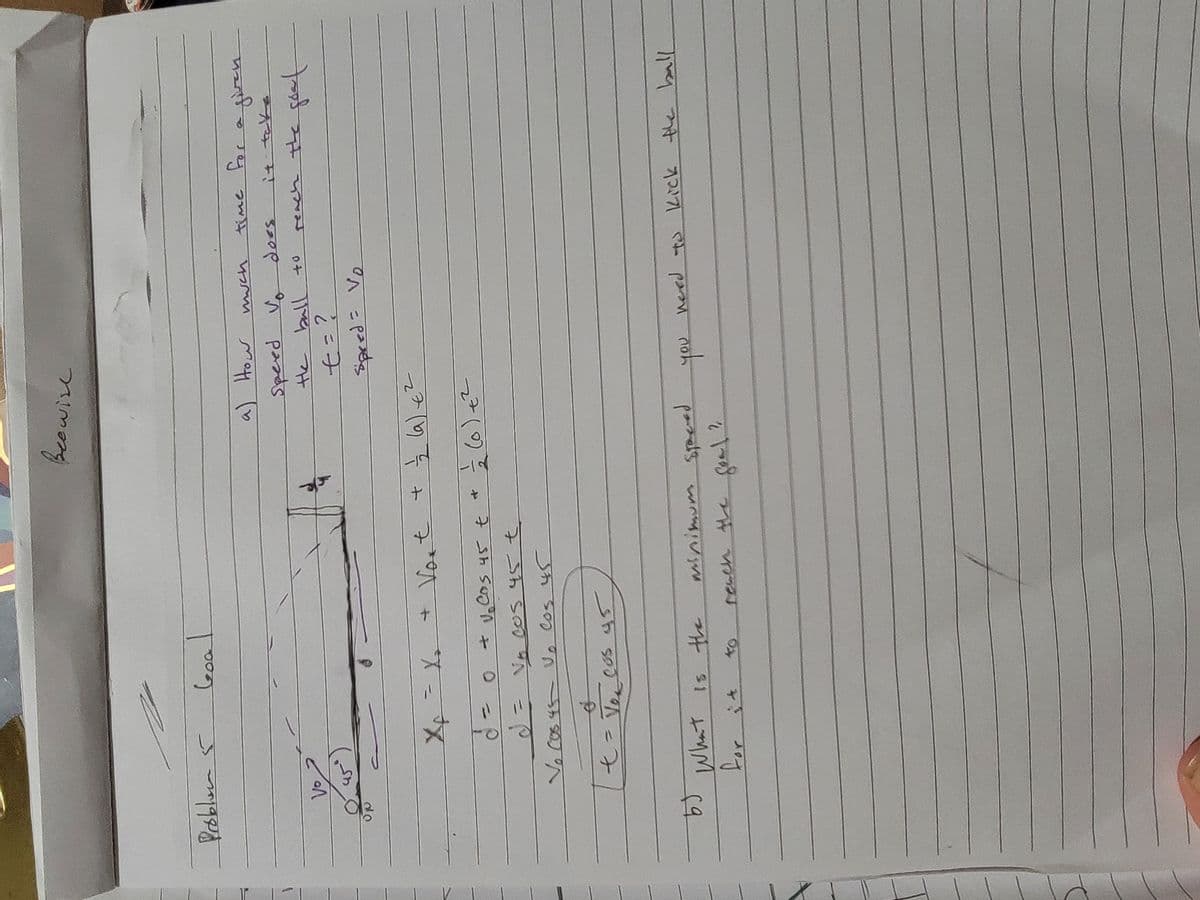 Problem 5 Goal
a) How much time for a given
speed V₀ does it take
the ball to reach the goal
t = ?
speed = V₀
V₀
45°
d
d/4
X_f = X₀ + V₀ₓt + ½(a)t²
d = 0 + V₀cos45 t + ½(0)t²
d = V₀ cos 45 t
V₀ cos 45 V₀ cos 45
t = d / V₀ₓ cos 45
b) What is the minimum speed you need to kick the ball
for it to reach the goal?